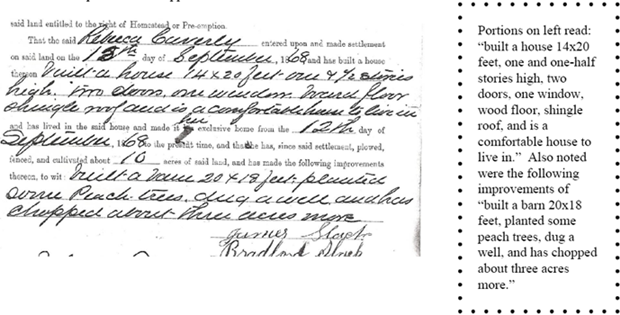 said land entitled to the right of Homestead or Pre-emption.
That the said Rebeca Caverly entered upon and made settlement
on said land on the 12th day of September, 1868 and has built a house
thereon built a house 14 x 20 feet one & 1/2 stories
high. two doors, one window. board floor
shingle roof and is a comfortable house to live in
and has lived in the said house and made it her exclusive home from the 12th day of
September, 1868 to the present time, and that he has, since said settlement, plowed,
fenced, and cultivated about 10 acres of said land, and has made the following improvements
thereon, to wit: built a barn 20 x 18 feet planted
some Peach trees. dug a well and has
chopped about three acres more
James
Bradford
Portions on left read:
“built a house 14x20
feet, one and one-half
stories high, two
doors, one window,
wood floor, shingle
roof, and is a
comfortable house to
live in.” Also noted
were the following
improvements of
“built a barn 20x18
feet, planted some
peach trees, dug a
well, and has chopped
about three acres
more.”